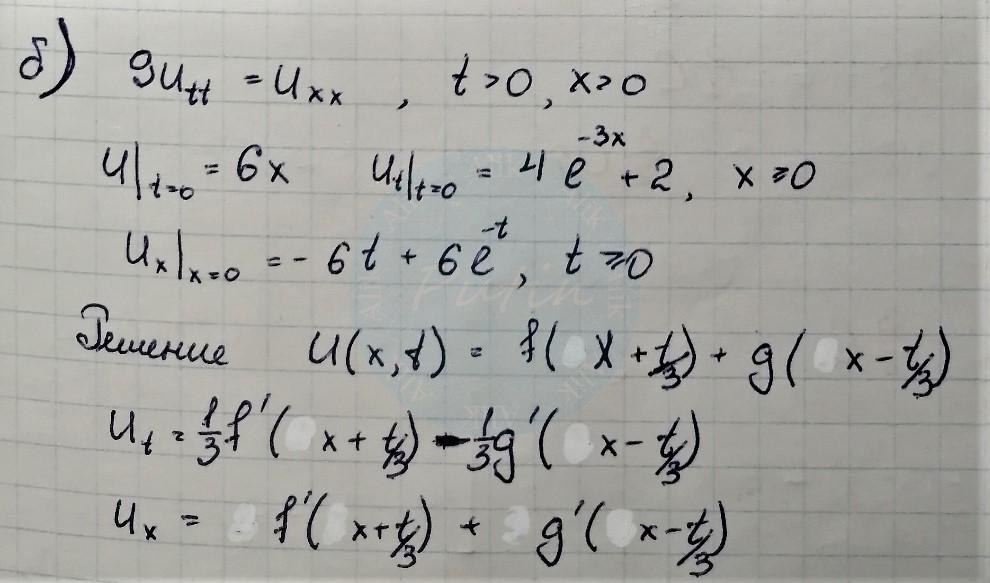 б) 9u_tt = u_xx , t>0, x>0
u|_t=0 = 6x u_t|_t=0 = 4e^-3x + 2, x⩾0
u_x|_x=0 = - 6t + 6e^-t, t⩾0
Решение u(x,t) = f( x + t/3) + g( x - t/3)
u_t = 1/3 f'( x + t/3) - 1/3 g'( x - t/3)
u_x = f'( x + t/3) + g'( x - t/3)